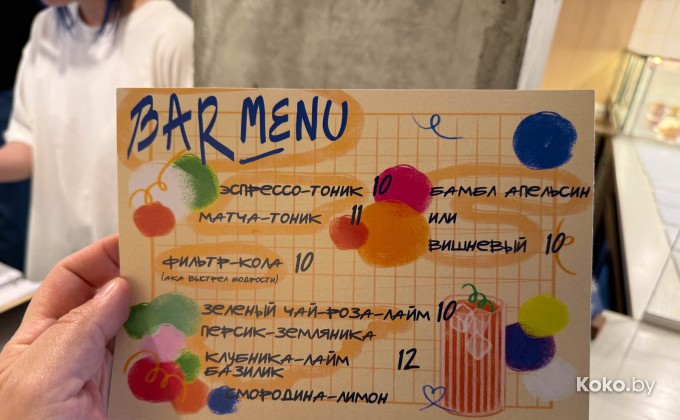 BAR MENU
ЭСПРЕССО-ТОНИК 10
МАТЧА-ТОНИК 11
ФИЛЬТР-КОЛА 10
(АКА ВЫСТРЕЛ БОДРОСТИ)
БАМБЛ АПЕЛЬСИН
ИЛИ
ВИШНЕВЫЙ 10
ЗЕЛЕНЫЙ ЧАЙ-РОЗА-ЛАЙМ 10
ПЕРСИК-ЗЕМЛЯНИКА
КЛУБНИКА-ЛАЙМ
БАЗИЛИК 12
СМОРОДИНА-ЛИМОН
Koko.by